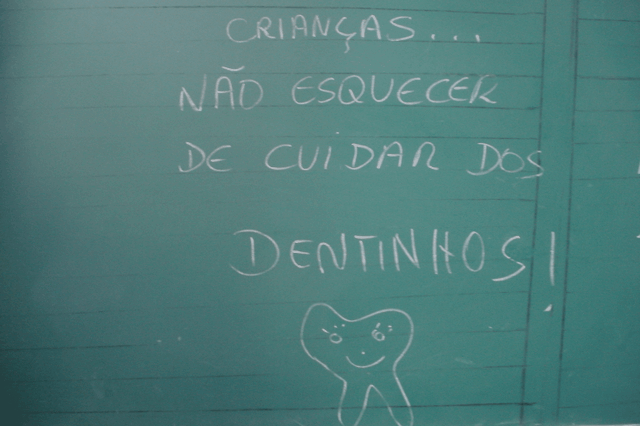 CRIANÇAS...
NÃO ESQUECER
DE CUIDAR DOS
DENTINHOS!